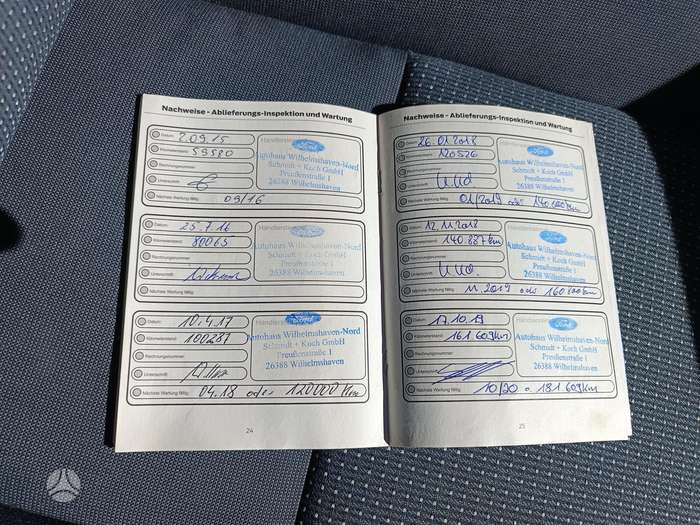 Nachweise - Ablieferungs-Inspektion und Wartung
Datum: 2.09.15
Kilometerstand: 59580
Rechnungsnummer:
Unterschrift:
Nächste Wartung fällig: 09/16
Händlerstempel
Ford
Autohaus Wilhelmshaven-Nord
Schmidt + Koch GmbH
Preußenstraße 1
26388 Wilhelmshaven
Datum: 25.7.16
Kilometerstand: 80065
Rechnungsnummer:
Unterschrift:
Nächste Wartung fällig:
Händlerstempel
Ford
Autohaus Wilhelmshaven-Nord
Schmidt + Koch GmbH
Preußenstraße 1
26388 Wilhelmshaven
Datum: 10.4.17
Kilometerstand: 100287
Rechnungsnummer:
Unterschrift:
Nächste Wartung fällig: 04.18 oder 120000 km
Händlerstempel
Ford
Autohaus Wilhelmshaven-Nord
Schmidt + Koch GmbH
Preußenstraße 1
26388 Wilhelmshaven
24
Nachweise - Ablieferungs-Inspektion und Wartung
Datum: 26.01.2018
Kilometerstand: 120526
Rechnungsnummer:
Unterschrift:
Nächste Wartung fällig: 01/2019 oder 140000 km
Händlerstempel
Ford
Autohaus Wilhelmshaven-Nord
Schmidt + Koch GmbH
Preußenstraße 1
26388 Wilhelmshaven
Datum: 12.11.2018
Kilometerstand: 140.887km
Rechnungsnummer:
Unterschrift:
Nächste Wartung fällig: 11.2019 oder 160.800km
Händlerstempel
Ford
Autohaus Wilhelmshaven-Nord
Schmidt + Koch GmbH
Preußenstraße 1
26388 Wilhelmshaven
Datum: 17.10.19
Kilometerstand: 161 609km
Rechnungsnummer:
Unterschrift:
Nächste Wartung fällig: 10/20 o 181 609km
Händlerstempel
Ford
Autohaus Wilhelmshaven-Nord
Schmidt + Koch GmbH
Preußenstraße 1
26388 Wilhelmshaven
25